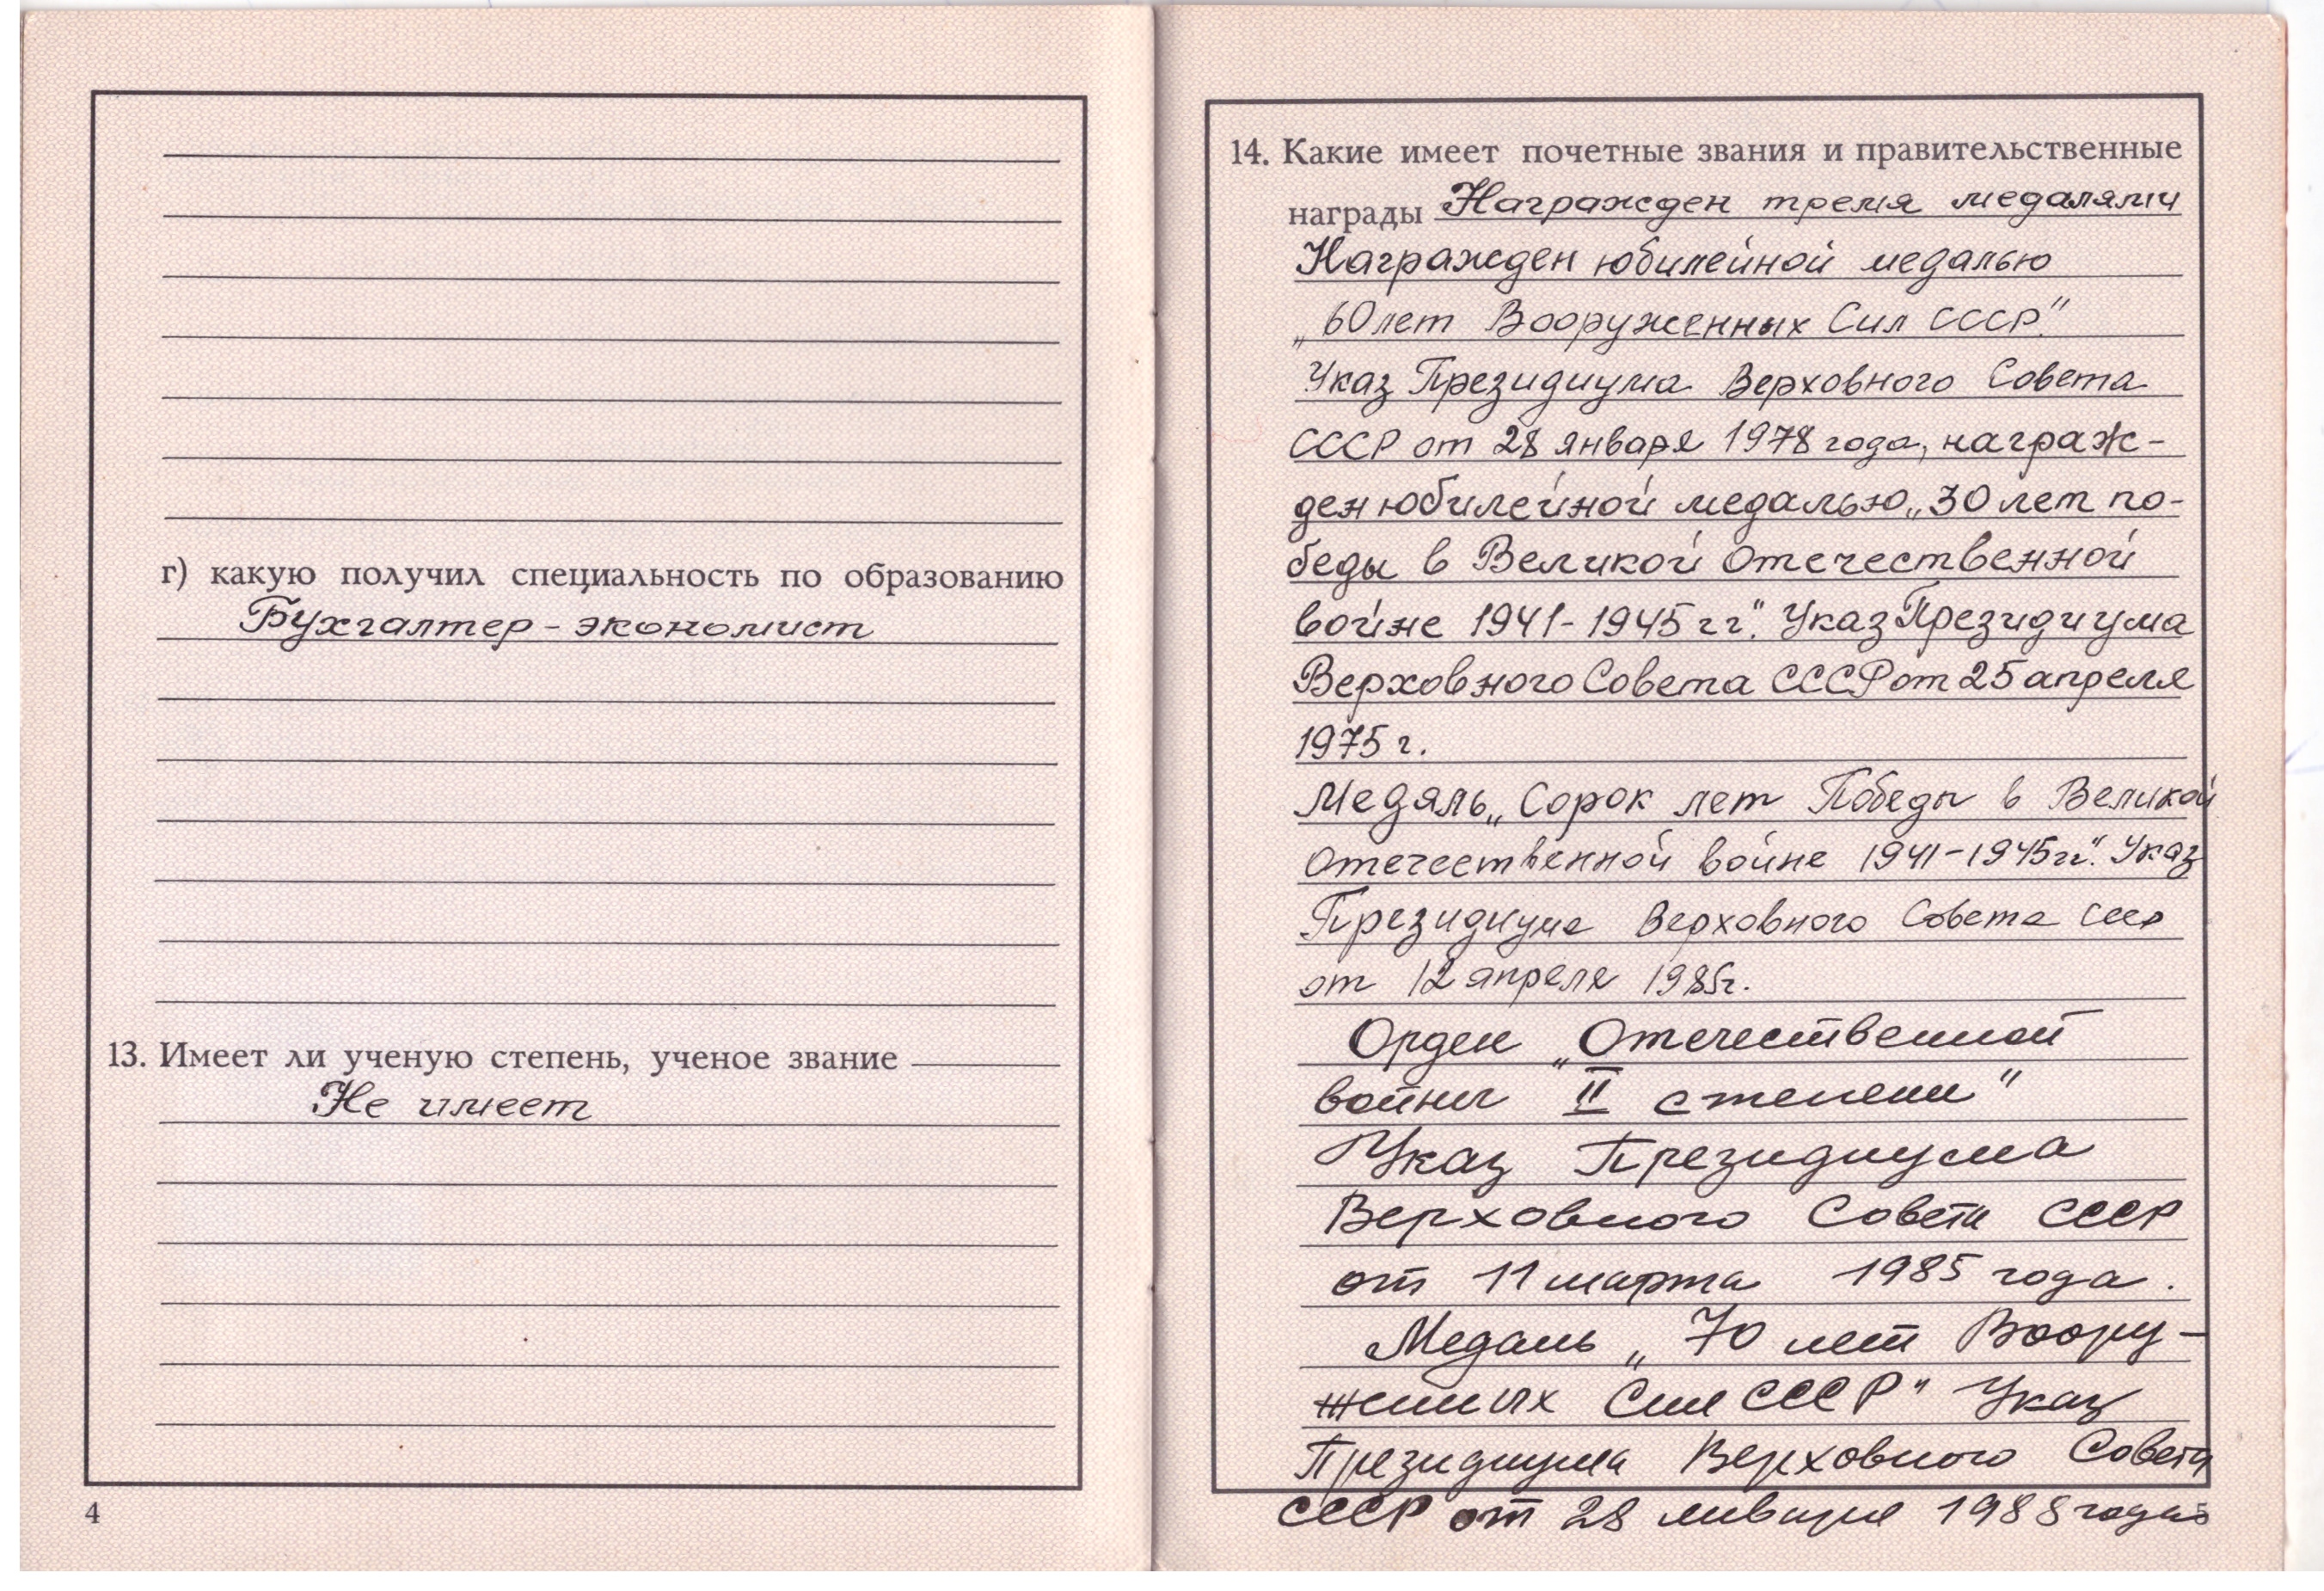 г) какую получил специальность по образованию
Бухгалтер-экономист
13. Имеет ли ученую степень, ученое звание
Не имеет
4
14. Какие имеет почетные звания и правительственные
награды Награжден тремя медалями
Награжден юбилейной медалью
„60 лет Вооруженных Сил СССР".
Указ Президиума Верховного Совета
СССР от 28 января 1978 года, награж-
ден юбилейной медалью „30 лет по-
беды в Великой Отечественной
войне 1941-1945 гг". Указ Президиума
Верховного Совета СССР от 25 апреля
1975 г.
Медаль „Сорок лет Победы в Великой
Отечественной войне 1941-1945гг". Указ
Президиума Верховного Совета СССР
от 12 апреля 1985г.
Орден „Отечественной
войны II степени"
Указ Президиума
Верховного Совета СССР
от 11 марта 1985 года.
Медаль „70 лет Воору-
женных Сил СССР" Указ
Президиума Верховного Совета
СССР от 28 января 1988 года
5